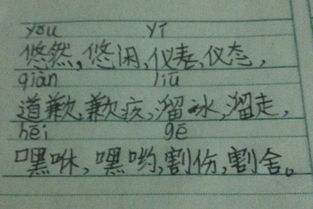 yōu yí
悠然,悠闲,仪表,仪态,
qiàn liū
道歉,歉疚,溜冰,溜走,
hēi gē
嘿咻,嘿哟,割伤,割舍。